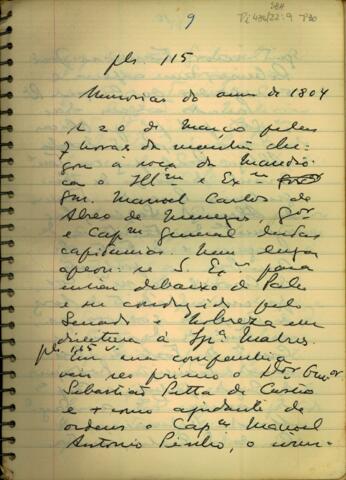 9
pls 115
Memorias do anno de 1804
A 20 de Março pelas
7 horas da manhã che-
gou à roça da Mandio-
ca o Illmo e Exmo
Snr. Manoel Carlos de
Abreo de Menezes, Gor
e Capm General destas
capitanias. Nem
apeou-se S. Exa para
entrar debaixo d Palio
e ser conduzido pelo
Senado e Nobreza em
direitura à Igra Matris.
pls 115 v.
Em sua companhia
veio seo primo o Dor
Sebastião Pitta de Castro
e + como ajudante de
ordens o Capm Manoel
Antonio Pinho, o